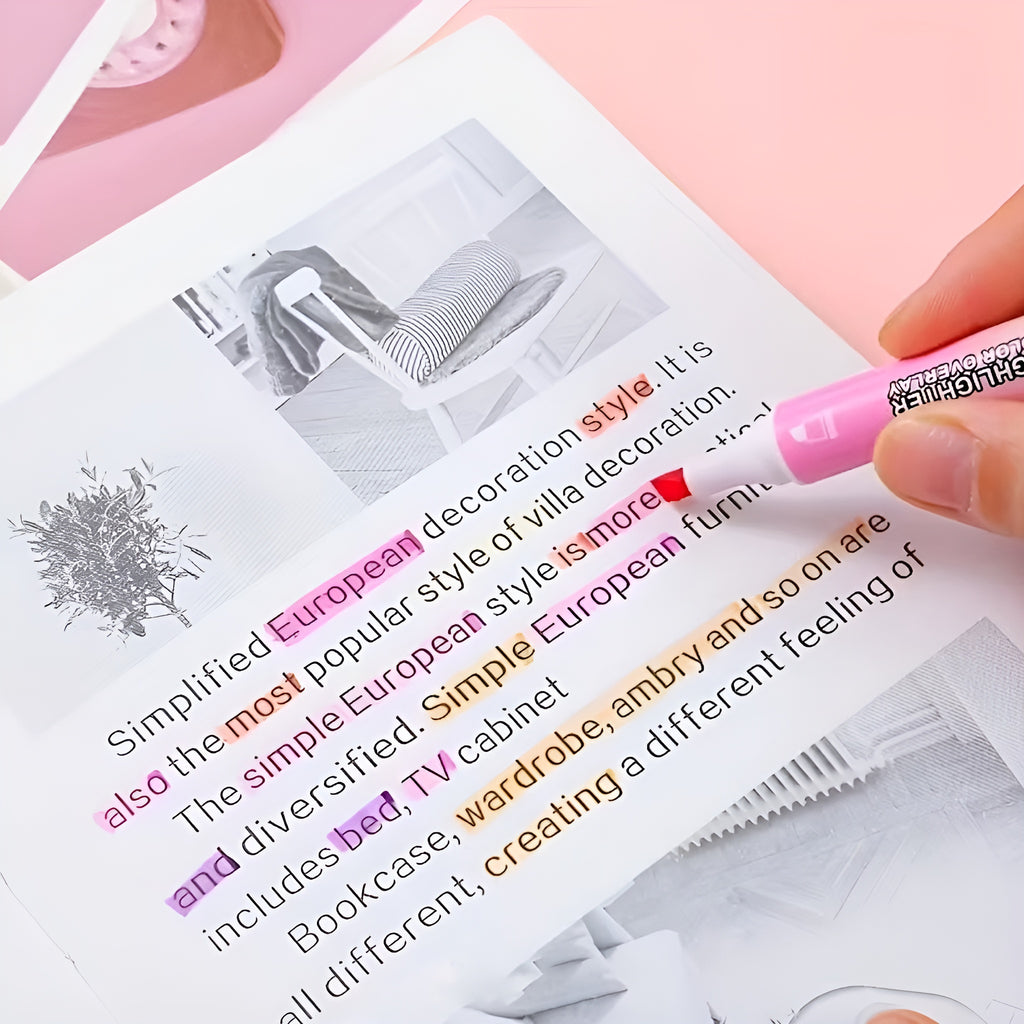 Simplified European decoration style. It is
also the most popular style of villa decoration.
The simple European style is more
and diversified. Simple European furnit
includes bed, TV cabinet
Bookcase, wardrobe, ambry and so on are
all different, creating a different feeling of
GHLIGHTER
LOR OVERLAY